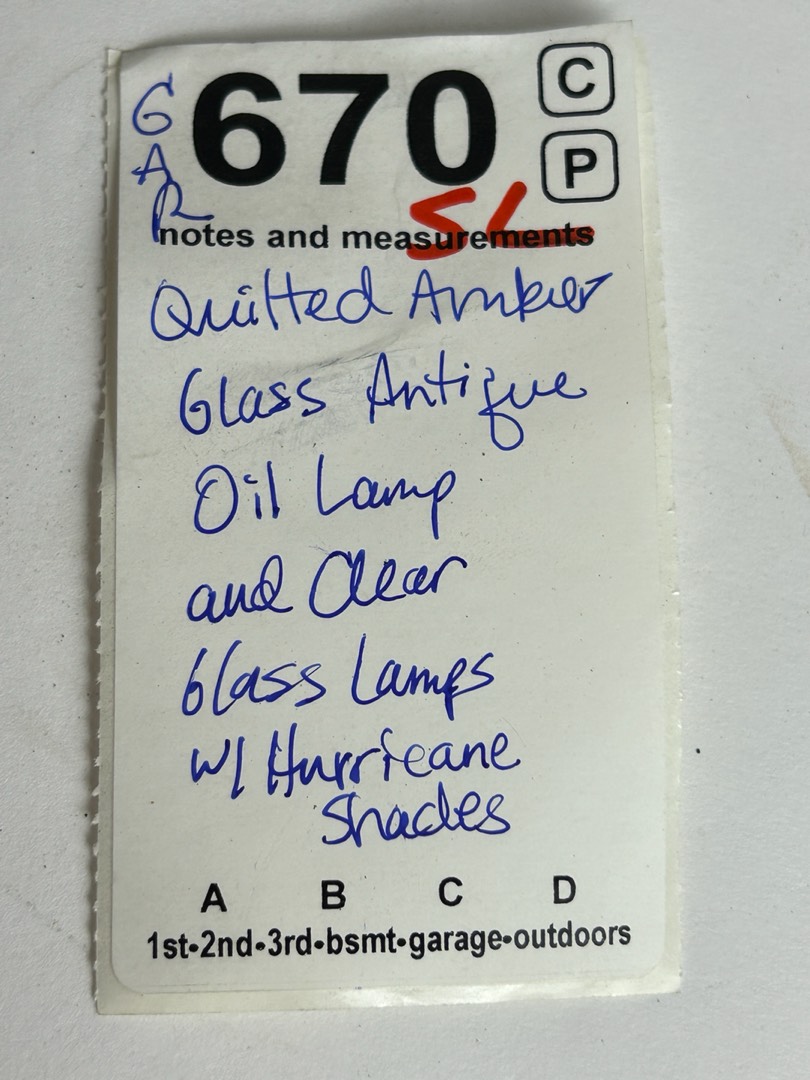 GAR
670
C
P
SL
notes and measurements
Quilted Amber
Glass Antique
Oil Lamp
and Clear
Glass Lamps
w/ Hurricane
Shades
A B C D
1st•2nd•3rd•bsmt•garage•outdoors